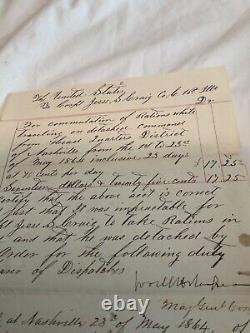 The United States
To Capt Jesse S. Craig Co. C 1st Ills
Dr
For commutation of Rations while
traveling on detached command
from Head Quarters District
of Nashville from the 1st to 23d
of May 1864 inclusive 23 days
at 75 cents per day $17.25 $17 25
Seventeen dollars & Twenty five cents
certify that the above acct is correct
just that it was impracticable for
Jesse S. Craig to take Rations in
and that he was detached by
Order for the following duty
of Dispatches
Maj Genl
at Nashville 23d of May 1864.
ebay